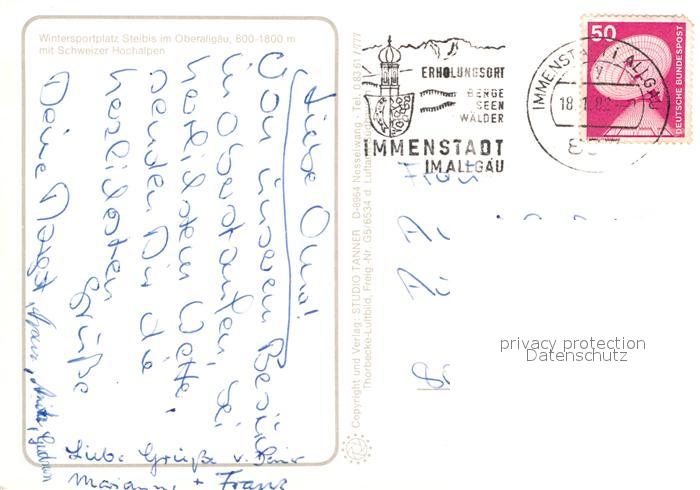 Wintersportplatz Steibis im Oberallgäu, 800-1800 m
mit Schweizer Hochalpen
Liebe Oma!
Von unserem Besuch
in Oberstaufen, bei
herrlichstem Wetter,
senden Dir die
herzlichsten
Grüße
Deine Margt, Franz, Anita, Gudrun
Liebe Grüße v. Deiner
Marianne + Franz
Copyright und Verlag: STUDIO TANNER D-8964 Nesselwang - Tel. 0 83 61 / 777
Thorbecke-Luftbild, Freig.-Nr. G5/6534 d.
ERHOLUNGSORT
BERGE
SEEN
WÄLDER
IMMENSTADT
IM ALLGÄU
IMMENSTADT I ALLGÄU
50
DEUTSCHE BUNDESPOST
Frau
privacy protection
Datenschutz